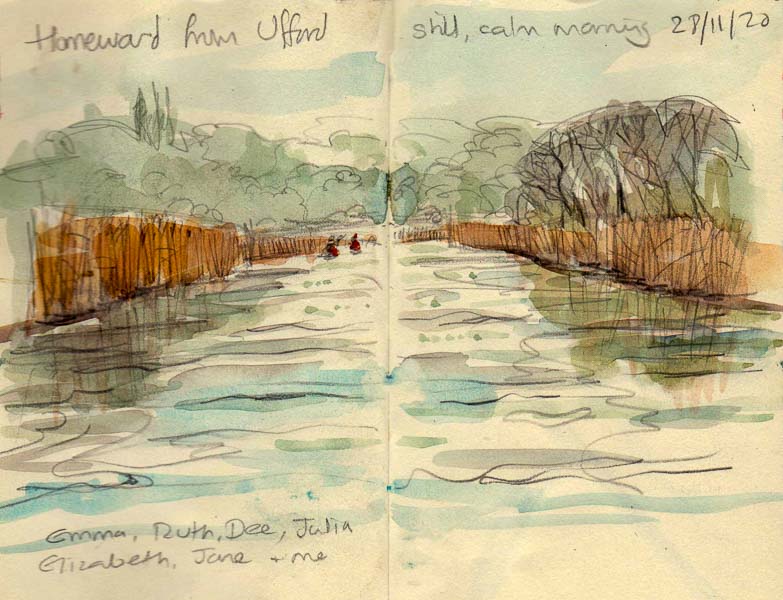 Homeward from Ufford
still, calm morning 28/11/20
Emma, Ruth, Dee, Julia
Elizabeth, Jane + me